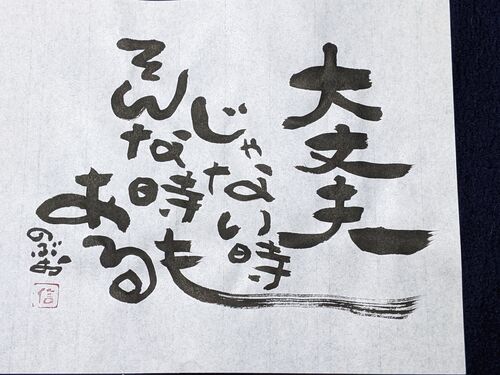 大丈夫
じゃない時
そんな時も
ある
のぶお
信